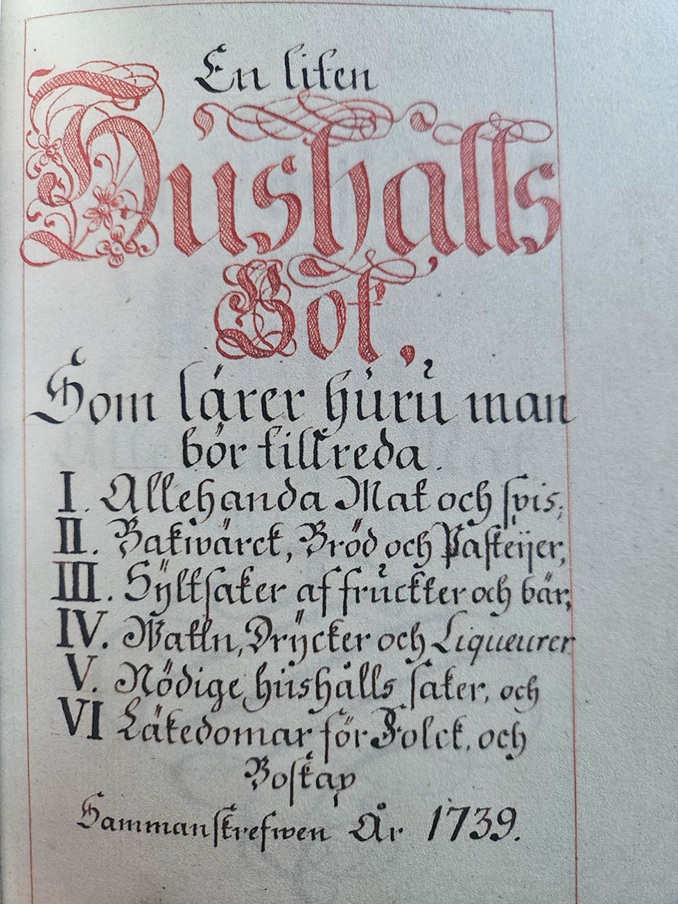 En liten
Hushålls
Bok,
Som lärer huru man
bör tillreda.
I. Allehanda Mat och spis;
II. Bakwärck, Bröd och Pasteijer,
III. Syltsaker af fruckter och bär,
IV. Watln, Drycker och Liqueurer
V. Nödige hushålls saker, och
VI Läkedomar för Folck, och
Boskap
Sammanskrefwen År 1739.